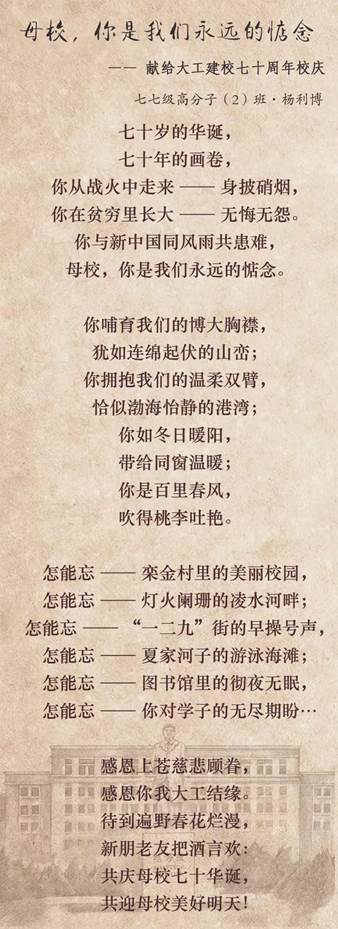 母校，你是我们永远的惦念
—— 献给大工建校七十周年校庆
七七级高分子（2）班·杨利博
七十岁的华诞，
七十年的画卷，
你从战火中走来 —— 身披硝烟，
你在贫穷里长大 —— 无悔无怨。
你与新中国同风雨共患难，
母校，你是我们永远的惦念。
你哺育我们的博大胸襟，
犹如连绵起伏的山峦；
你拥抱我们的温柔双臂，
恰似渤海怡静的港湾；
你如冬日暖阳，
带给同窗温暖；
你是百里春风，
吹得桃李吐艳。
怎能忘 —— 栾金村里的美丽校园，
怎能忘 —— 灯火阑珊的凌水河畔；
怎能忘 —— “一二九”街的早操号声，
怎能忘 —— 夏家河子的游泳海滩；
怎能忘 —— 图书馆里的彻夜无眠，
怎能忘 —— 你对学子的无尽期盼…
感恩上苍慈悲顾眷，
感恩你我大工结缘。
待到遍野春花烂漫，
新朋老友把酒言欢：
共庆母校七十华诞，
共迎母校美好明天！